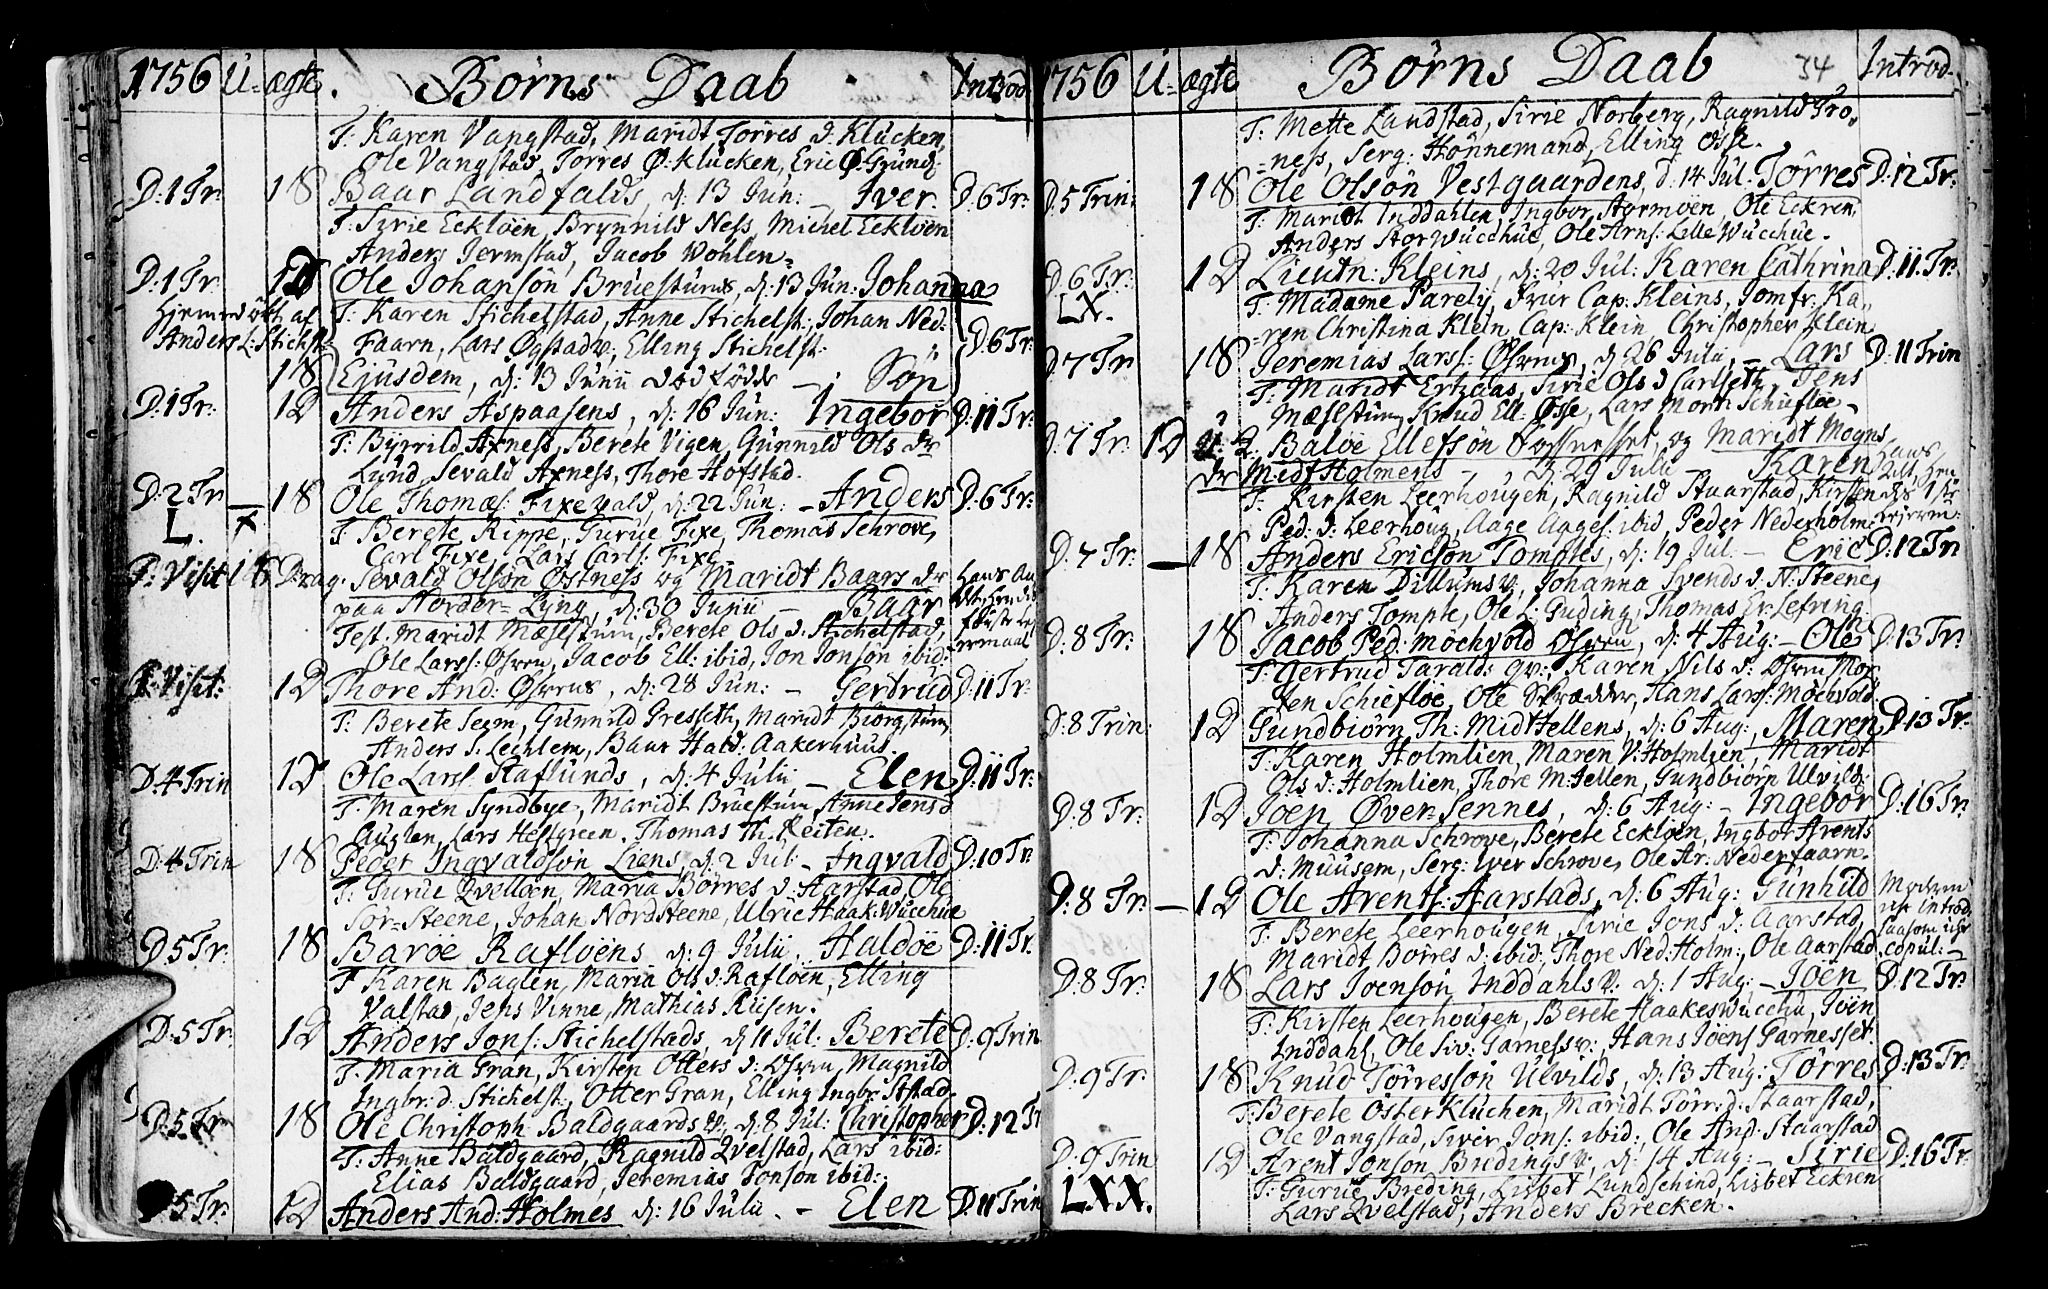 1756 U- ægte. Börns Daab Introd
T: Karen Vangstad, Maridt Torres d: Klucken,
Ole Vangstad, Torres Ø: Klucken, Eric Ø: Grund:
D: 1 Tr: 1 8 Baar Landfalds, d: 13 Jun: – Iver. D: 6 Tr:
T: Sirie Ecklöen, Brynnild Ness, Michel Ecklöen
Anders Jermstad, Jacob Wohlen
D: 1 Tr. 1 D Ole Johansön Bruesturus, d: 13 Jun: Johanna
Hiemedöbt af T: Karen Stichelstad, Anne Stichelst:, Johan Ned-
Anders L: Stichst: Faarn, Lars Øgstadv:, Elling Stichelst: D: 6 Tr:
1 8 Ejusdem, d: 13 Junii dödfödde – Sön
D: 1 Tr: 1 2 Anders Aspaasens, d: 16 Jun: Ingebor D: 11 Tr:
T: Byrrild Axness, Berete Vigen, Gunnild Ols dr
Lund, Sevald Axness, Thore Hofstad.
D: 2 Tr – 1 8 Ole Thomæs: Fixevald, d: 22 Jun: – Anders D: 6 Tr:
L. x T: Berete Rippe, Gurue Fixe, Thomas Schrove,
Carl Fixe, Lars Carls: Fixe
D: Visit 1 8 Drag. Sevald Olsön Östness og Maridt Baars dr Hans An
paa Nordre-Lyng, d: 30 Junii – Baar
Test. Maridt Mæhlstum, Berete Ols d: Stichelstad, förste Le
Ole Larss: Ösven, Jacob Ell: ibid, Jon Jonsön ibid: ermaal
D: Visit: 1 2 Thore And: Ösvens, d: 28 Jun: – Gertrud D: 11 Tr:
T: Berete Seem, Gunnild Gresseth, Maridt Biörgstum,
Anders S. Lechlem, Baar Hald: Aakerhuus.
D: 4 Trin 1 2 Ole Larss: Raflunds, d: 4 Julii – Elen D: 11 Tr:
T: Maren Syndbye, Maridt Bruestum, Anne Jens d
Auglen, Lars Hellgreen, Thomas Th: Reiten.
D: 4 Trin 1 8 Peder Ingvaldsön Liens, d: 2 Jul: – Ingvald D: 10 Tr
T: Gurue Qvelloen, Maria Börres d: Aarstad, Ole
Sör-Steene, Johan Nordsteene, Ulric Haak: Wuchue
D: 5 Tr. 1 8 Baroe Rafloens, d: 9 Julii, Haldoe D: 11 Tr.
T: Karen Baglen, Maria Ols d: Rafloen, Elling
Valstad, Jens Vinne, Mathias Risen.
D: 5 Tr. 1 2 Anders Jons: Stichelstads, d: 11 Jul: Berete D: 9 Trin
T: Maria Gran, Kirsten Otters d: Ösven, Magnild
Ingbr: d. Stichelst:, Otter Gran, Elling Ingbr: Ststad,
D: 5 Tr 1 8 Ole Christoph: Baldgaardsv:, d: 8 Jul: Christopher D: 12 Tr
T: Anne Baldgaard, Ragnild Qvelstad, Lars ibid:
Elias Baldgaard, Jeremias Jonsön ibid:.
D: 5 Tr. 1 2 Anders And: Holmes d: 16 Julii. – Elen D: 11 Trin
1756 U- ægte Börns Daab 34 Introd.
T: Mette Landstad, Sirie Norberg, Ragnild Tro-
-ness, Serg: Hönnemand, EllingÖsse.
D: 5 Trin: 1 8 Ole Olsön Vestgaardens, d: 14 Jul: Törres D: 12 Tr.
T: Maridt Inddahlen, Ingbor Stormoen, Ole Eckren,
Anders StorWucchue, Ole Arns: LilleWucchue.
D: 6 Tr: 1 2 Lieutn: Kleins, d: 20 Jul: Karen Cathrina D: 11. Tr.
LX. T: Madame Parely, Frue Cap: Kleins, Jomfr: Ka-
ren Christina Klein, Cap: Klein, Christopher Klein
D: 7 Tr 1 8 Jeremias Larss: Ösvens, d: 26 Julii, – Lars D: 11 Trin
T: Maridt Ertzaas, Sirie Ols d Carlseth, Jens
Mæhlstum, Knud Ell: Össe, Lars Mortn Schieflöe –
D: 7 Tr. 1 2 Baloe Ellefsön Fossnesset, og Maridt Mogns Hans
dr MidtHolmens – d: 29 Julii – Karen
T: Kirsten Leerhougen, Ragnild Staarstad, Kirsten des 1ste
Ped: d: Leerhoug, Aage Aages: ibid, Peder Nederholm: leierm:
D: 7 Tr. – 1 8 Anders Ericsön Tomptes, d: 19 Jul: – Eric D: 12 Tr
T: Karen Dillumsv:, Johanna Svends d: N: Steene,
Anders Tompte, Ole L: Guding, Thomas Er: Lefring.
D: 8 Tr: 1 8 Jacob Ped: Mochvold Ösven, d: 4 Aug: – Ole D: 13 Tr:
T: Gertrud Taralds: qv:, Karen Nils d: Ösven, Mor-
ten Schiefloe, Ole Skrædder, Hans Larss: Mochvold.
D: 8 Trin: 1 2 Gundbiörn Th: MidtHellens, d: 6 Aug: Maren D: 13 Tr.
T: Karen Holmlien, Maren V: Holmlien, Maridt
Ols d: Holmlien, Thore M: Hellen, Gundbiörn Ulvild:
D: 8 Tr: 1 2 Joen Över-Sennes, d: 6 Aug: – Ingebor D: 16 Tr.
T: Johanna Schrove, Berete Eckloen, Ingbor Arents
d: Muusem, Serg: Iver Schrove, Ole Ar: Nederfaarn.
D: 8 Tr. – 1 2 Ole Arents: Aarstads, d: 6 Aug: Gunhild Moderen
T: Berete Leerhougen, Sirie Jons d: Aarstad, ey introd
Maridt Börres d: ibid:, Thore Ned: Holm:, Ole Aarstad saasom icke copul: –
D: 8 Tr: 1 8 Lars Joensön Inddahlsv: d: 1 Aug: – Joen D: 12 Tr.
T: Kirsten Leerhougen, Berete Haakes Wucchu, Joen
Inddahl, Ole Siv: Garnessv:, Hans Joens Garnesset.
D: 9 Tr. 1 8 Knud Törressön Ulvilds, d: 13 Aug: Törres D: 13 Tr.
T: Berete Österkluchen, Maridt Törr: d: Staarstad,
Ole Vangstad, Siver Jons: ibid:, Ole And: Staarstad
D: 9 Trin 1 2 Arent Jonsön Bredingsv:, d: 14 Aug: – Sirie D: 16 Tr.
LXX. T: Gurue Breding, Lisbet Lundschind, Lisbet Eckren
Lars Qvelstad, Anders Brecken.